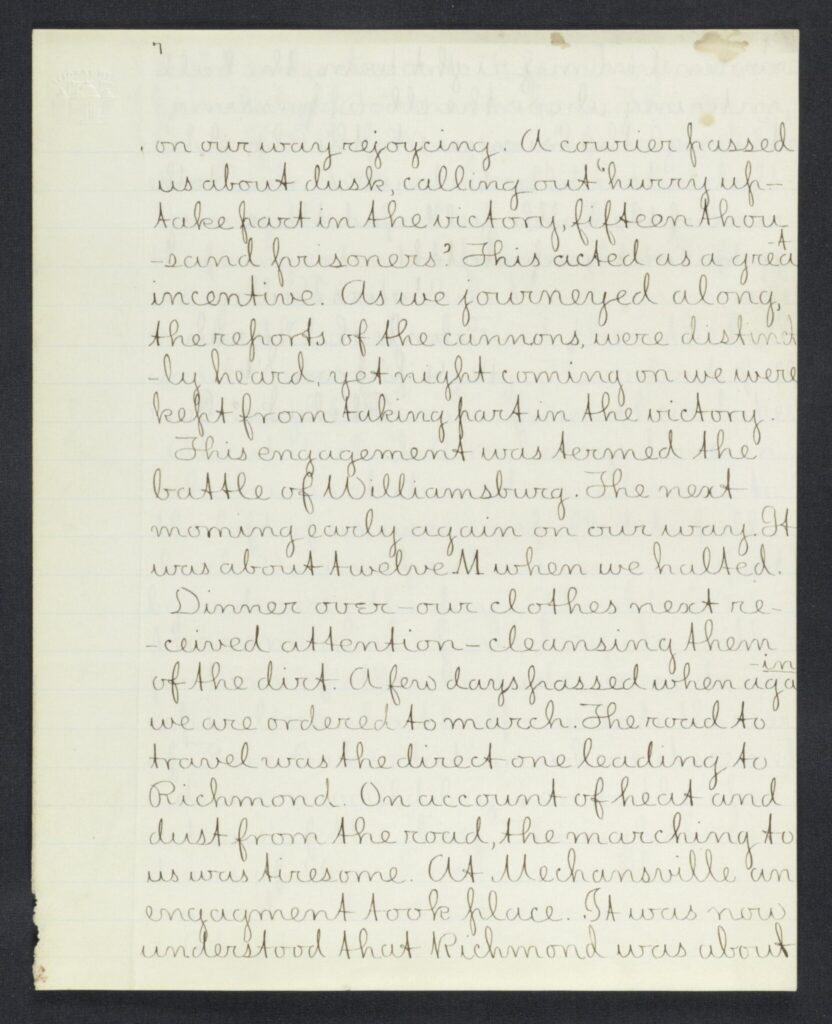 7
on our way rejoycing. A courier passed
us about dusk, calling out "hurry up-
take part in the victory, fifteen thou
-sand prisoners". This acted as a great
incentive. As we journeyed along,
the reports of the cannons, were distinct
-ly heard, yet night coming on we were
kept from taking part in the victory.
This engagement was termed the
battle of Williamsburg. The next
morning early again on our way. It
was about twelve M when we halted.
Dinner over-our clothes next re-
-ceived attention-cleansing them
of the dirt. A few days passed when aga-in
we are ordered to march. The road to
travel was the direct one leading to
Richmond. On account of heat and
dust from the road, the marching to
us was tiresome. At Mechansville an
engagment took place. It was now
understood that Richmond was about